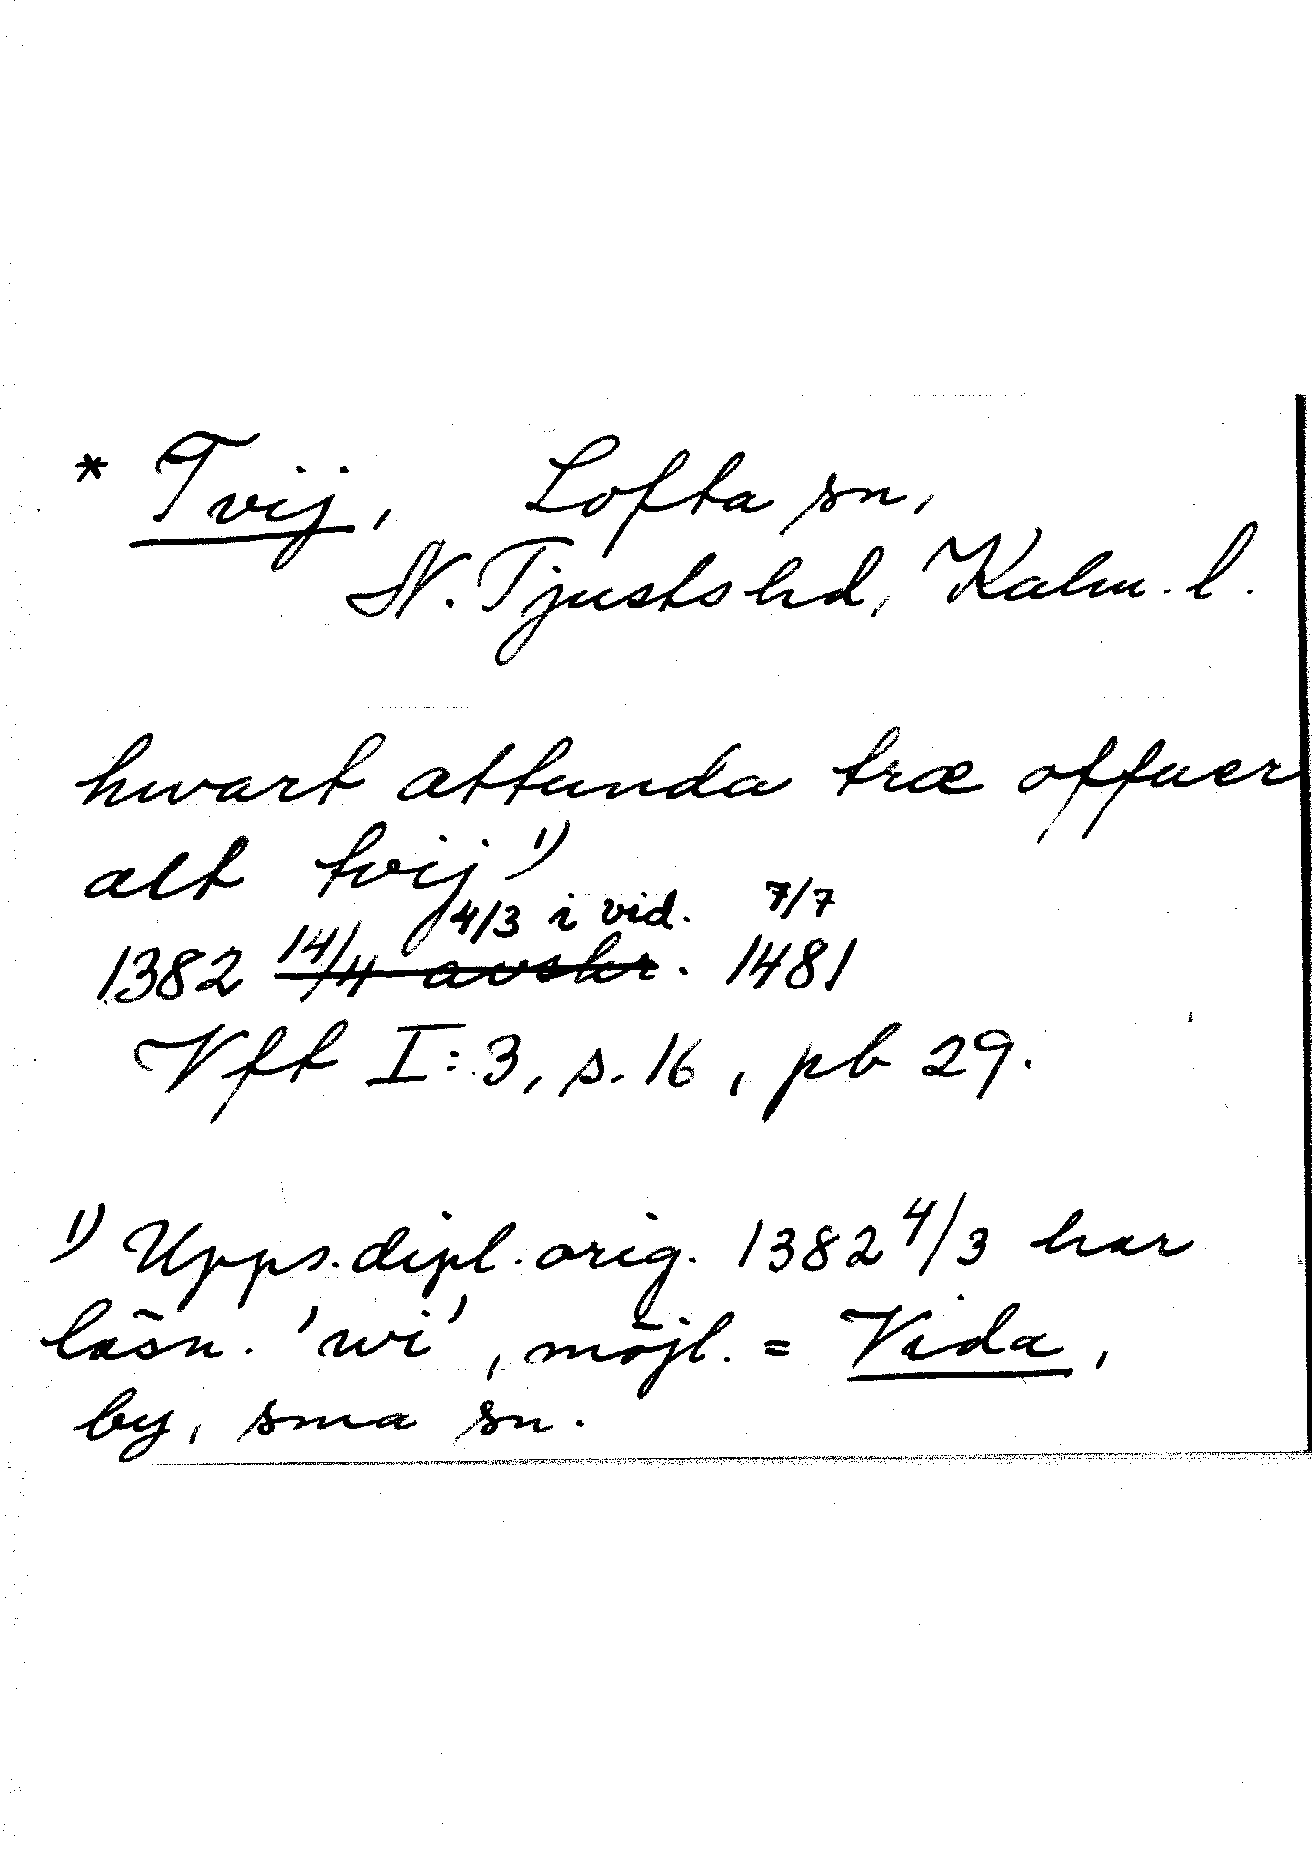 * Tvij, Lofta sn,
N. Tjusts hd, Kalm. l.
hwart attunda træ offuer
alt tvij 1)
4/3 i vid. 7/7
1382 14/4 avskr. 1481
Vft I:3, s. 16, pb 29.
1) Upps.dipl. orig. 1382 4/3 har
läsn. 'wi', möjl. = Vida,
by, sma sn.